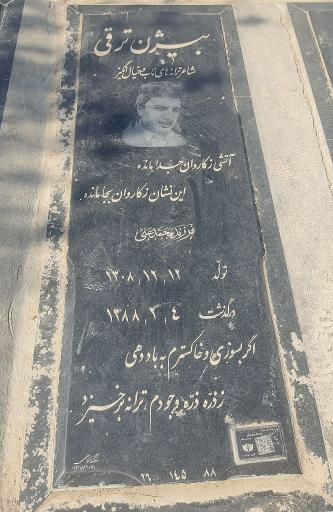 بیژن ترقی
شاعر ترانه های ناب و خیال انگیز
آتشی ز کاروان جدا مانده
این نشان ز کاروان بجا مانده
فرزند محمد علی
تولد ۱۳۰۸،۱۲،۱۲
درگذشت ۱۳۸۸،۲،۴
اگر بسوزی و خاکسترم به باد دهی
ز ذره ذره وجودم، ترانه برخیزد
۸۸ ۱۴۵ ۲۶